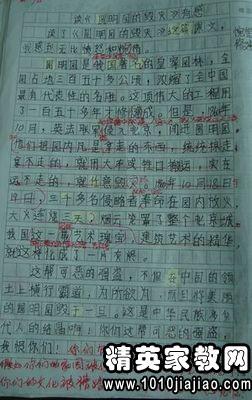 读《圆明园的毁灭》有感
读了《圆明园的毁灭》这篇课文，
我感到无比愤怒和
圆明园是我国著名的皇家园林，全
园占地三百五十多公顷，浓缩了全中国
最有代表性的名胜。这项伟大的工程用
了一百五十多年才修建成。但是，1860年
10月，英法联军侵入北京，闯进圆明园。
他们把园内凡是拿走的东西，统统掠走
拿不走的，就用大车或牲口搬运，实在
运不走的，就任意毁灭。1860年10月18日至
19日，三千多名侵略者奉命在园内放火，
大火连烧三天，烟云笼罩了整个北京城
我国这一园艺术瑰宝、建筑艺术的精华
就这样化成了一片灰烬。
这帮可恶的强盗，不但在中国的领
土上横行霸道，为所欲为，而且将美丽
的圆明园毁于一旦。这是中国人民多少
代人的结晶啊！你们这帮可恶的强盗，
我恨你们！你们
你们的文化被
精英家教网
www.1010jiajiao.com